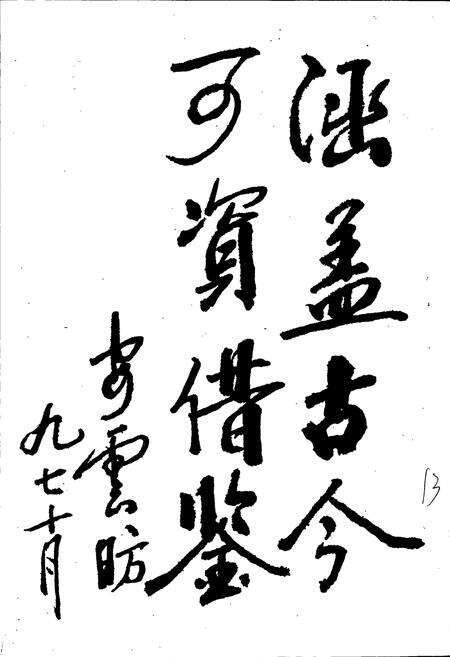 涵盖古今
可資借鑒
安雲昉
九七十月
13